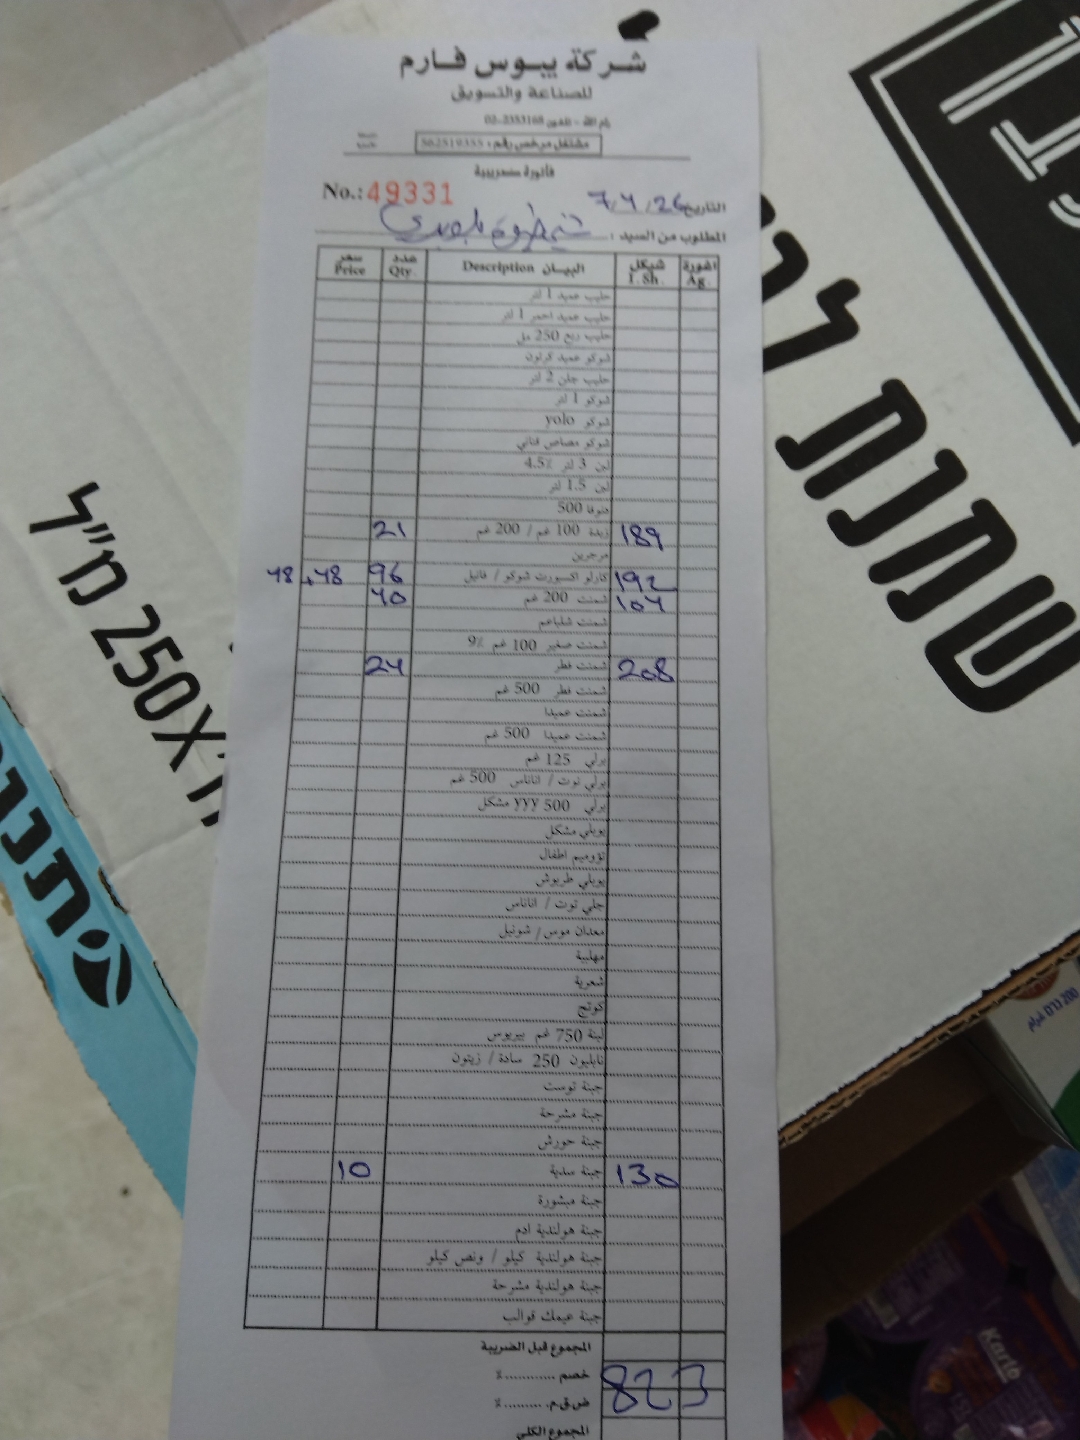 شركة يبوس فارم
للصناعة والتسويق
رام الله - تلفون 02-2353168
مشتغل مرخص رقم: 562519335
فاتورة ضريبية
No.: 49331
التاريخ 7/4/26
المطلوب من السيد:
سعر Price عدد Qty. البيان Description شيكل I.Sh. اغورة Ag.
حليب عميد 1 لتر
حليب عميد احمر 1 لتر
حليب ربع 250 مل
شوكو عميد كرتون
حليب جلن 2 لتر
شوكو 1 لتر
شوكو yolo
شوكو مصاص فناني
لبن 3 لتر 4.5٪
لبن 1.5 لتر
500
21 زبدة 100 غم / 200 غم 189
مرجرين
48+48 96 كارلو اكسبورت شوكو / فانيل 192
40 شمنت 200 غم 104
شمنت شلباعم
شمنت صغير 100 غم 9٪
24 شمنت فطر 208
شمنت فطر 500 غم
شمنت عميدا
شمنت عميدا 500 غم
برلي 125 غم
برلي توت / اناناس 500 غم
برلي 500 yyy مشكل
يوبلي مشكل
تؤوميم اطفال
يوبلي طربوش
جلي توت / اناناس
معدان موس / شونيل
مهلبية
شعرية
كوتج
لبنة 750 غم بيربوس
نابليون 250 سادة / زيتون
جبنة توست
جبنة مشرحة
جبنة حورش
10 جبنة سدية 130
جبنة مبشورة
جبنة هولندية ادم
جبنة هولندية كيلو / ونص كيلو
جبنة هولندية مشرحة
جبنة عيمك قوالب
المجموع قبل الضريبة
خصم ............٪
ض.ق.م. .........٪
823
المجموع الكلي
שמנת
250X
מ"ל
תנובה
Karlo
200 גרם غرام